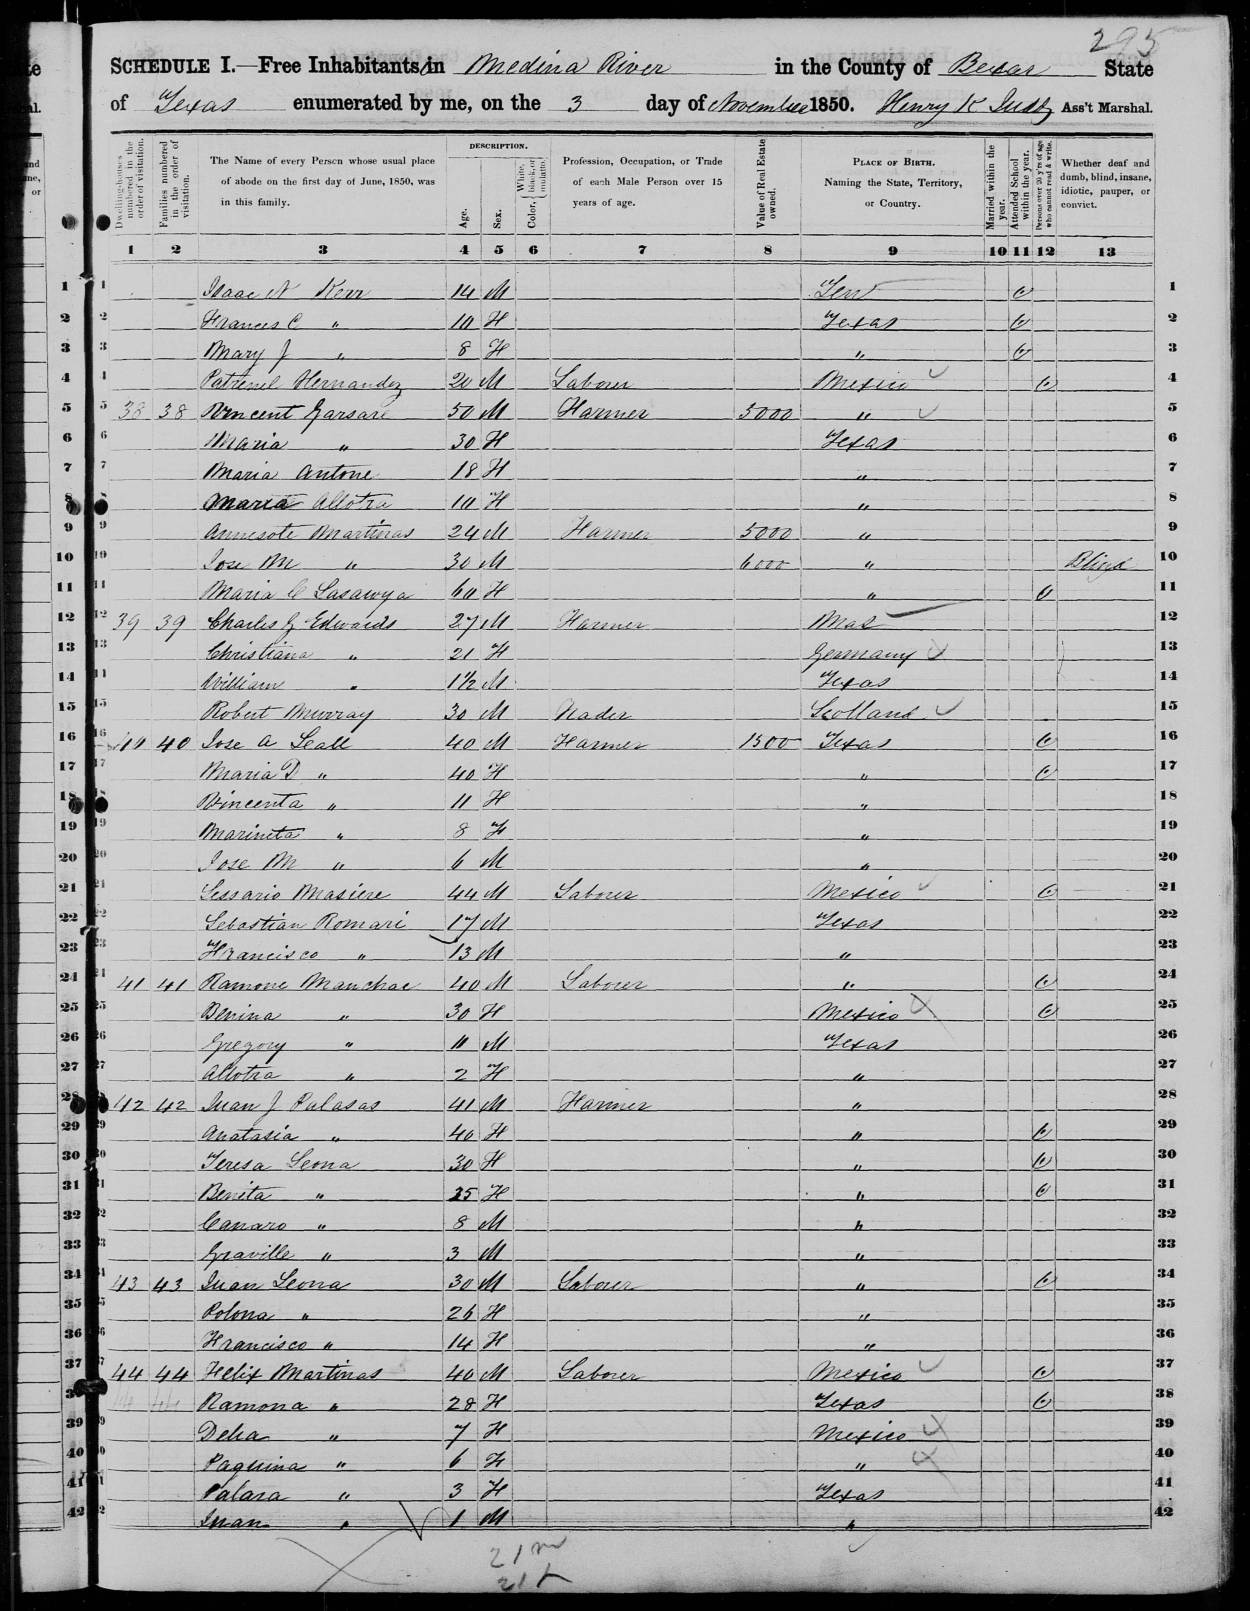 295
SCHEDULE I.—Free Inhabitants in Medina River in the County of Bexar State
of Texas enumerated by me, on the 3 day of November 1850. Henry K Judd Ass't Marshal.
Dwelling-houses numbered in the order of visitation.
Families numbered in the order of visitation.
The Name of every Person whose usual place of abode on the first day of June, 1850, was in this family.
DESCRIPTION.
Age.
Sex.
Color, White, black, or mulatto.
Profession, Occupation, or Trade of each Male Person over 15 years of age.
Value of Real Estate owned.
PLACE OF BIRTH. Naming the State, Territory, or Country.
Married within the year.
Attended School within the year.
Persons over 20 y'rs of age who cannot read & write.
Whether deaf and dumb, blind, insane, idiotic, pauper, or convict.
1 2 3 4 5 6 7 8 9 10 11 12 13
1 Isaac N Kerr 14 M Ten 1
2 Frances C " 10 F Texas 2
3 Mary J " 8 F " 3
4 Hernandez 20 M Laborer Mexico 4
5 38 38 Vincent Garsare 50 M Farmer 5000 " 5
6 Maria " 30 F Texas 6
7 Maria Antone 18 F " 7
8 Maria Allotra 10 F " 8
9 Martinas 24 M Farmer 5000 " 9
10 Jose M " 30 M 6000 " Blind 10
11 Maria C 60 F " 11
12 39 39 Charles G Edwards 27 M Farmer Mas 12
13 Christiana " 21 F Germany 13
14 William " 1½ M Texas 14
15 Robert Murray 30 M Scotland 15
16 40 40 Jose A Leall 40 M Farmer 1500 Texas 16
17 Maria D " 40 F " 17
18 Vincenta " 11 F " 18
19 Marineta " 8 F " 19
20 Jose M " 6 M " 20
21 Lessario Masiere 44 M Laborer Mexico 21
22 Sebastian Romari 17 M Texas 22
23 Francisco " 13 M " 23
24 41 41 Ramone Manchac 40 M Laborer " 24
25 Benina " 30 F Mexico 25
26 Gregory " 11 M Texas 26
27 Allotra " 2 F " 27
28 42 42 Juan J Palasas 41 M Farmer " 28
29 Anatasia " 40 F " 29
30 Teresa Leona 30 F " 30
31 Benita " 25 F " 31
32 Canaro " 8 M " 32
33 Graville " 3 M " 33
34 43 43 Juan Leona 30 M Laborer " 34
35 Polona " 26 F " 35
36 Francisco " 14 F " 36
37 44 44 Felix Martinas 40 M Laborer Mexico 37
38 Ramona " 28 F Texas 38
39 Delia " 7 F Mexico 39
40 Paquina " 6 F " 40
41 Palara " 3 F Texas 41
42 Juan " 1 M " 42
21 m
21 f